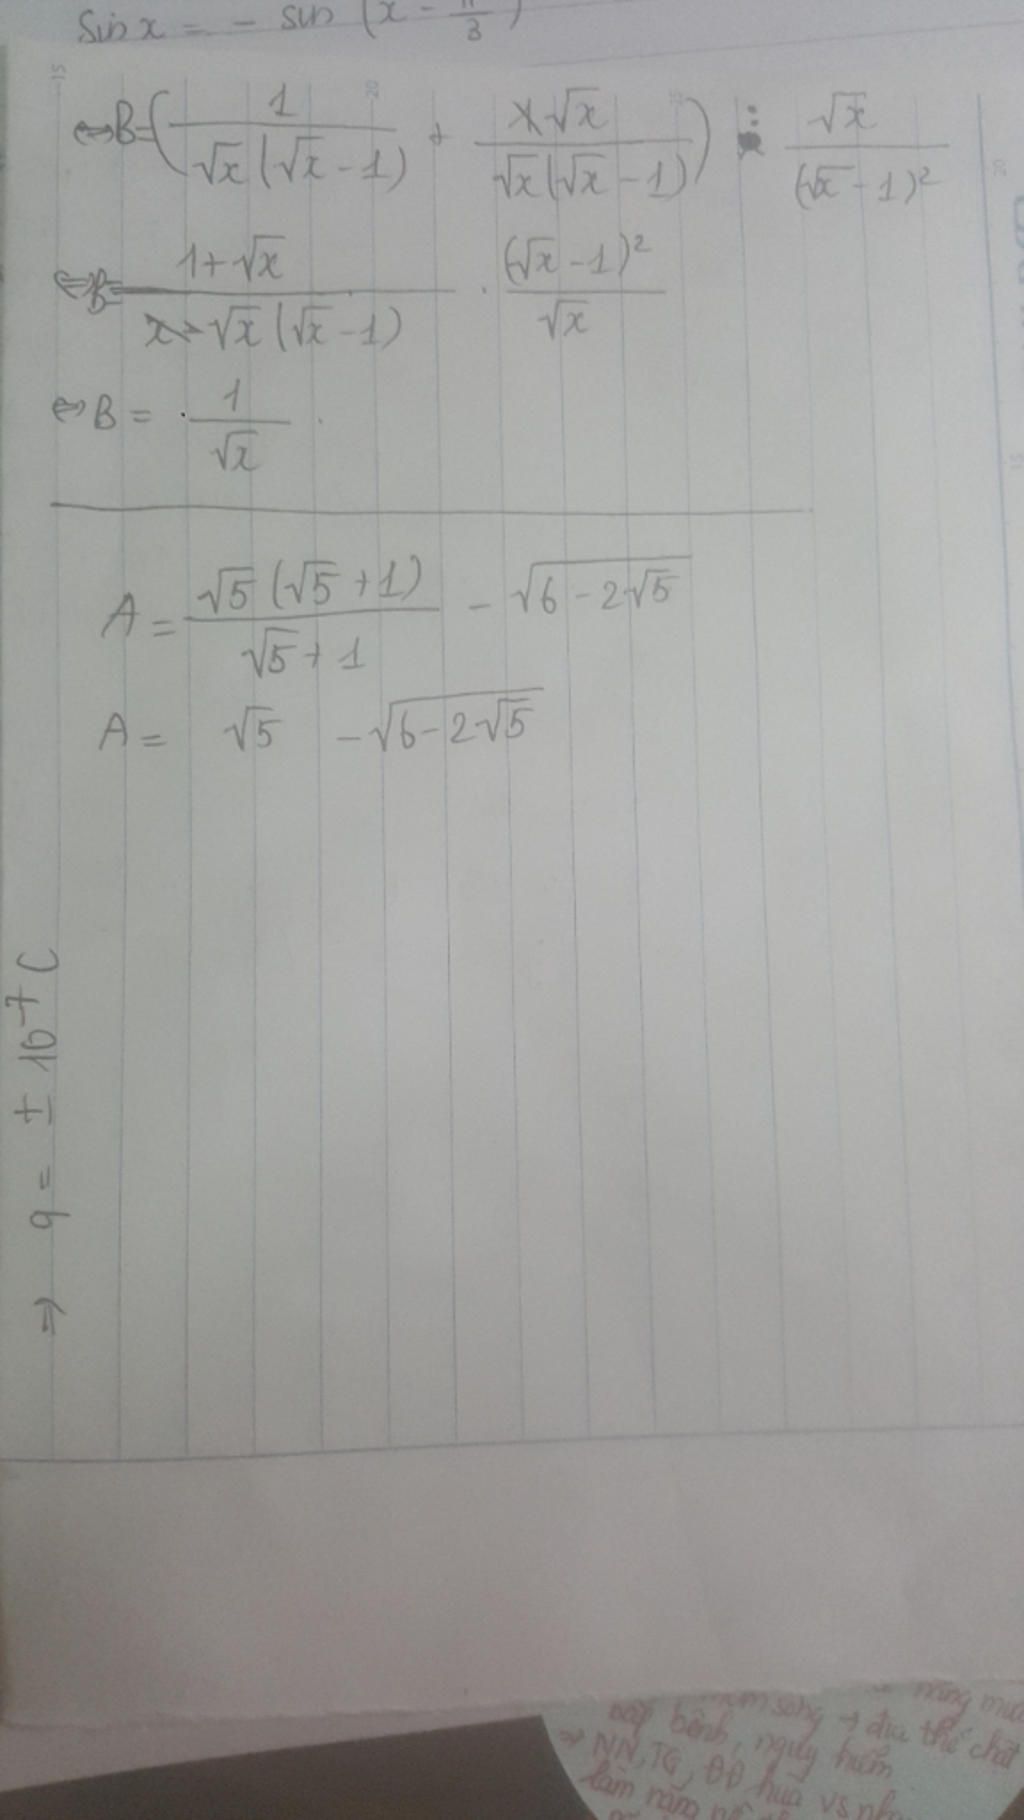 Sin x = - sin (x - π/3)
⇔ B = (1/(√x(√x - 1)) + √x/(√x(√x - 1))) : √x/(√x - 1)²
⇔ B = (1 + √x)/(√x(√x - 1)) . (√x - 1)²/√x
⇔ B = 1/√x
A = √5(√5 + 1)/(√5 + 1) - √(6 - 2√5)
A = √5 - √(6 - 2√5)
⇒ q = ± 10⁻⁷ C
sống → đưa thể chất
bệnh, nguy hiểm
⇒ NN, TG, ĐĐ hua vs
làm